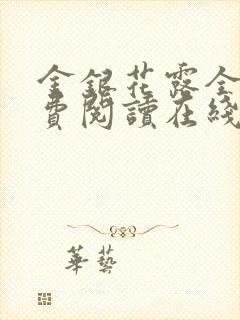 金銀花露全
費閱讀在綫
華藝